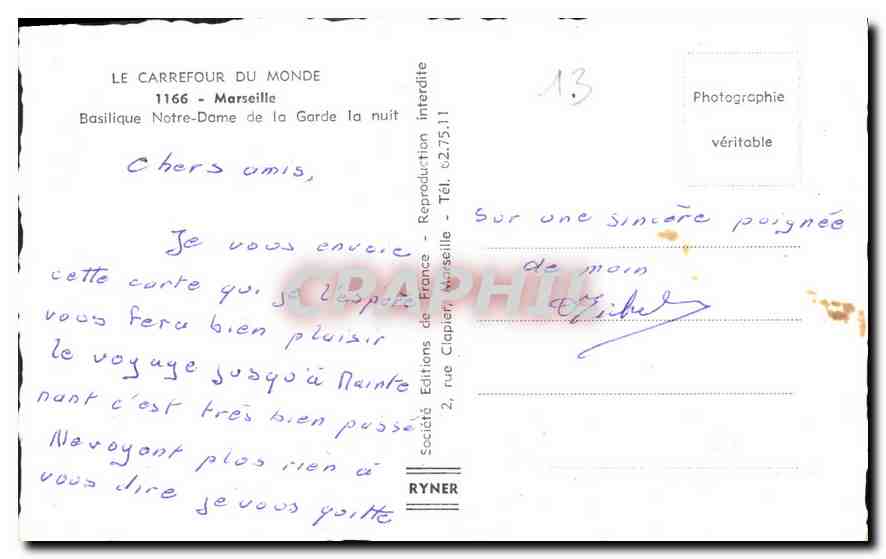 LE CARREFOUR DU MONDE
1166 - Marseille
Basilique Notre-Dame de la Garde la nuit
Chers amis,
Je vous envoie
cette carte qui je l'espère
vous fera bien plaisir
le voyage jusqu'à Mainte
nant c'est très bien passé
Ne voyant plus rien à
vous dire je vous quitte
Société Editions de France - Reproduction interdite
2, rue Clapier, Marseille - Tél. 62.75.11
RYNER
13
Photographie
véritable
sur une sincère poignée
de main
Michel
CPAPHIL